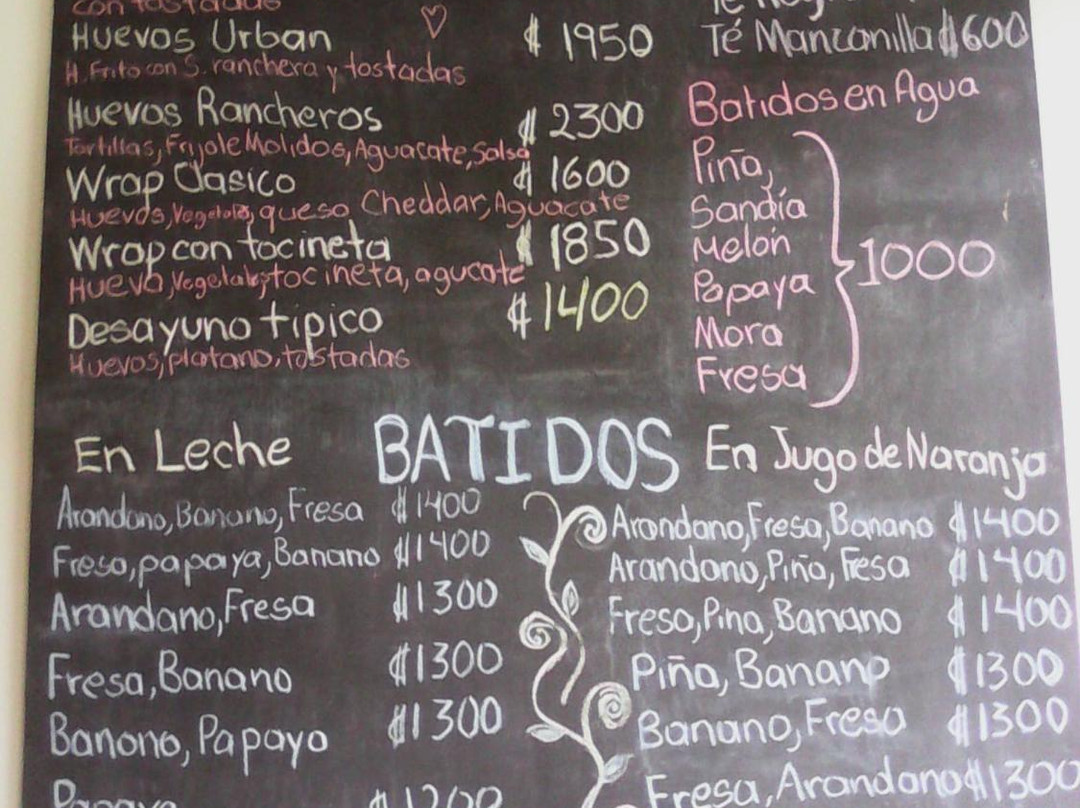 con tostadas
Huevos Urban ₡ 1950
H. Frito con S. ranchera y tostadas
Huevos Rancheros ₡ 2300
Tortillas, Frijole Molidos, Aguacate, Salsa
Wrap Clasico ₡ 1600
Huevos, Vegetales, queso Cheddar, Aguacate
Wrap con tocineta ₡ 1850
Huevo, Vegetales, tocineta, agucate
Desayuno tipico ₡ 1400
Huevos, platano, tostadas
Té Manzanilla ₡600
Batidos en Agua
Piña,
Sandía
Melon
Papaya
Mora
Fresa
1000
BATIDOS
En Leche
Arandano, Banano, Fresa ₡1400
Fresa, papaya, Banano ₡1400
Arandano, Fresa ₡1300
Fresa, Banano ₡1300
Banano, Papaya ₡1300
Papaya ₡1200
En Jugo de Naranja
Arandano, Fresa, Banano ₡1400
Arandano, Piña, Fresa ₡1400
Fresa, Pina, Banano ₡1400
Piña, Banano ₡1300
Banano, Fresa ₡1300
Fresa, Arandano ₡1300